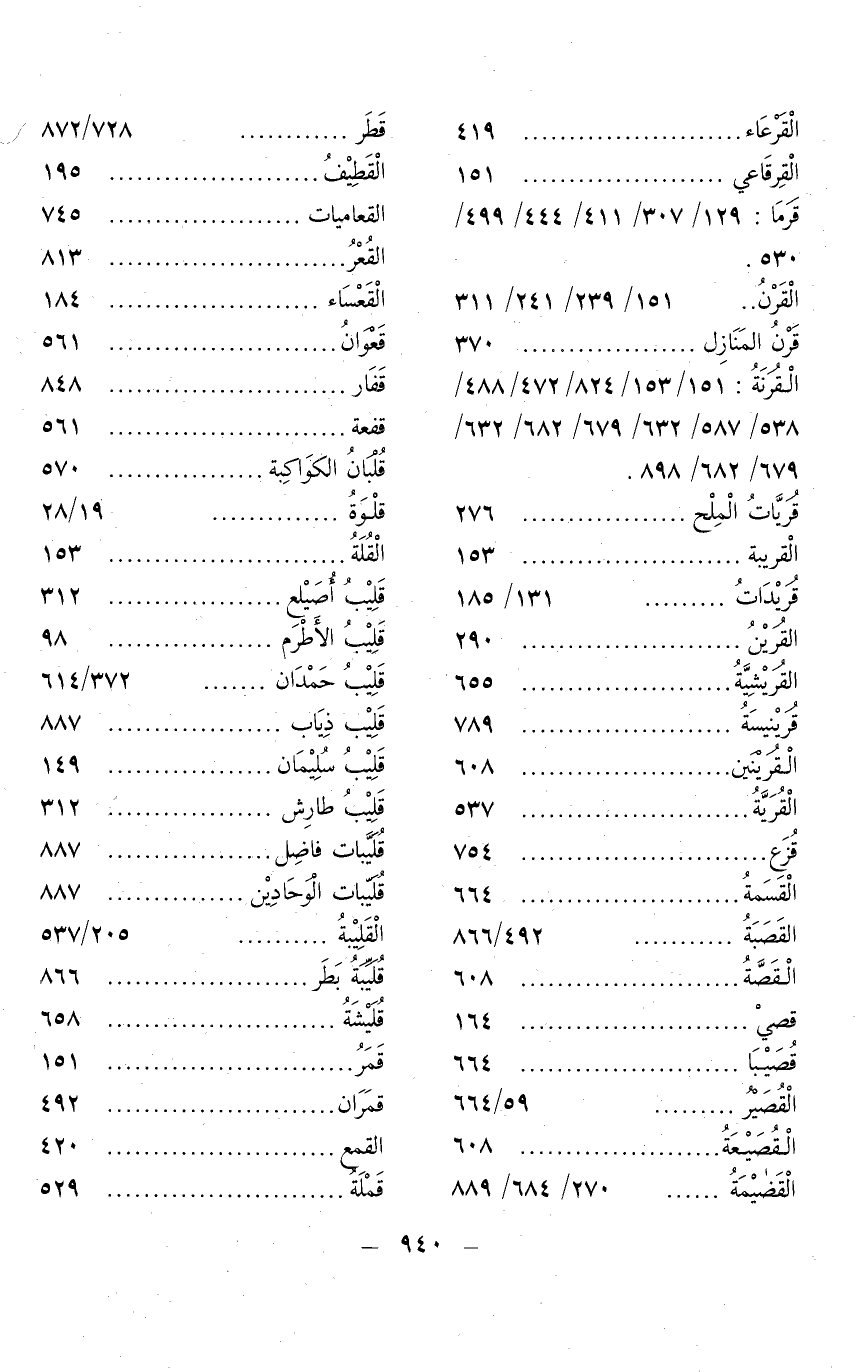 الْقَرْعَاء ........................ ٤١٩
الْقِرِقَاعي ...................... ١٥١
قَرَمَا : ١٢٩/ ٣٠٧/ ٤١١/ ٤٤٤/ ٤٩٩/
٥٣٠ .
الْقَرْنُ.. ١٥١/ ٢٣٩/ ٢٤١/ ٣١١
قَرْنُ المَنَازِل ................... ٣٧٠
الْقُرَنَةُ : ١٥١/ ١٥٣/ ٨٢٤/ ٤٧٢/ ٤٨٨/
٥٣٨/ ٥٨٧/ ٦٣٢/ ٦٧٩/ ٦٨٢/ ٦٣٢/
٦٧٩/ ٦٨٢/ ٨٩٨ .
قُرَيَّاتُ الْمِلْح .................. ٢٧٦
الْقريبة ........................ ١٥٣
قُرَيْدَاتُ ......... ١٣١/ ١٨٥
القُرَيْنُ ........................ ٢٩٠
القُرَيْشِيَّةُ ....................... ٦٥٥
قُرَيْنِيسَةُ ....................... ٧٨٩
الْقُرَيْنَين ....................... ٦٠٨
الْقُرَيَّةُ ......................... ٥٣٧
قُزَع ........................... ٧٥٤
الْقَسَمةُ ........................ ٦٦٤
القَصَبَةُ ........... ٨٦٦/٤٩٢
الْقَصَّةُ ........................ ٦٠٨
قصيْ ......................... ١٦٤
قُصَيْبَا ........................ ٦٦٤
الْقُصَيْرُ ......... ٦٦٤/٥٩
الْقُصَيْعَةُ ...................... ٦٠٨
الْقَضِيْمَةُ ...... ٢٧٠/ ٦٨٤/ ٨٨٩
قَطَر ............ ٨٧٢/٧٢٨
الْقَطِيْفُ ....................... ١٩٥
القعاميات ..................... ٧٤٥
القُعْرُ .......................... ٨١٣
الْقَعْسَاء ....................... ١٨٤
قَعْوَانُ ......................... ٥٦١
قَفَار .......................... ٨٤٨
قفعة .......................... ٥٦١
قُلْبَانُ الكَوَاكِبة ................. ٥٧٠
قلْوَةُ .............. ٢٨/١٩
الْقُلَةُ .......................... ١٥٣
قَلِيْبُ أُصَيْلع ................... ٣١٢
قَلِيْبُ الأَطْرَم .................. ٩٨
قَلِيْبُ حَمْدَان ....... ٦١٤/٣٧٢
قَلِيْب ذِيَاب ................... ٨٨٧
قَلِيْبُ سُلِيْمَان .................. ١٤٩
قَلِيْبُ طارِش .................. ٣١٢
قُلَيَّبات فاضِل .................. ٨٨٧
قُلَيّبات الْوَحَادِيْن ............... ٨٨٧
الْقَلِيْبةُ .......... ٥٣٧/٢٠٥
قُلَيِّبَةُ بَطَر ...................... ٨٦٦
قُلَيْشَةُ ......................... ٦٥٨
قَمَرُ ........................... ١٥١
قمَرَان ......................... ٤٩٢
القمع ......................... ٤٢٠
قَمْلَةُ .......................... ٥٢٩
— ٩٤٠ —